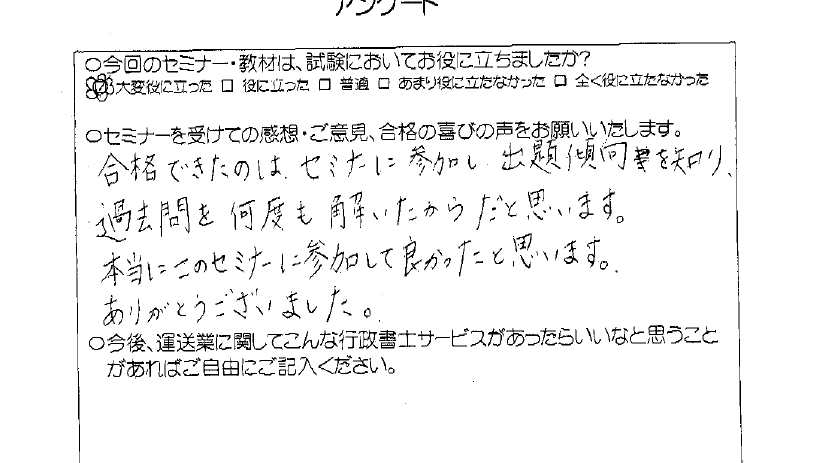 アンケート
○今回のセミナー・教材は、試験においてお役に立ちましたか?
☑ 大変役に立った □ 役に立った □ 普通 □ あまり役に立たなかった □ 全く役に立たなかった
○セミナーを受けての感想・ご意見、合格の喜びの声をお願いいたします。
合格できたのは、セミナーに参加し、出題傾向等を知り、
過去問を何度も解いたからだと思います。
本当にこのセミナーに参加して良かったと思います。
ありがとうございました。
○今後、運送業に関してこんな行政書士サービスがあったらいいなと思うこと
があればご自由にご記入ください。